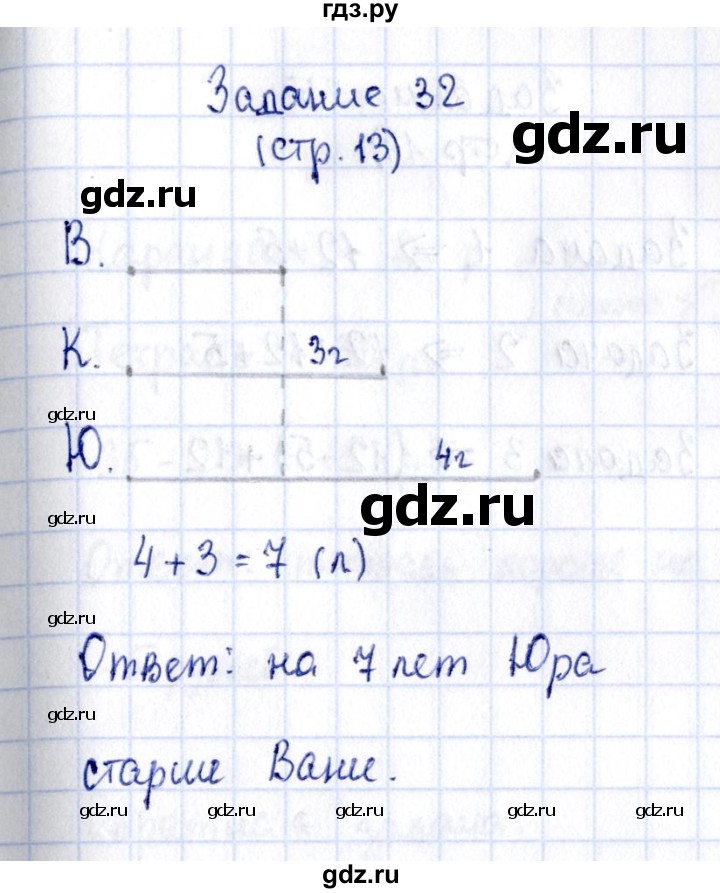 гдз.ру
Задание 32
gdz.ru
(стр. 13)
gdz.ru
В.
К. 3г
gdz.ru
Ю. 4г
gdz.ru
gdz.ru
4 + 3 = 7 (л)
gdz.ru
Ответ: на 7 лет Юра
gdz.ru
старше Вани.
gdz.ru gdz.ru gdz.ru gdz.ru gdz.ru
gdz.ru